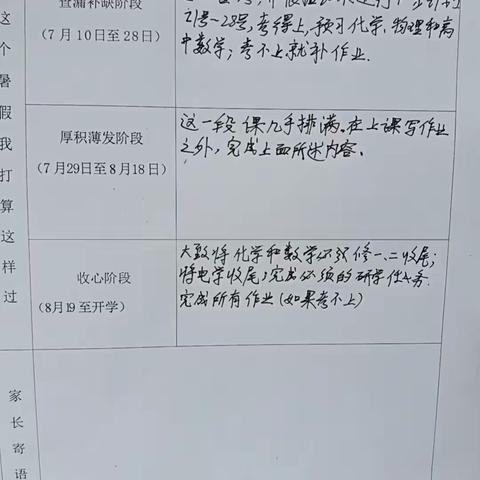 这个暑假我打算这样过
查漏补缺阶段
(7月10日至28日)
21号-28号,考得上,预习化学、物理和高
中数学;考不上就补作业.
厚积薄发阶段
(7月29日至8月18日)
这一段课几乎排满。在上课写作业
之外,完成上面所述内容。
收心阶段
(8月19至开学)
大致将化学和数学必修一、二收尾;
将电学收尾;完成必须的研学任务.
完成所有作业(如果考不上)
家长寄语